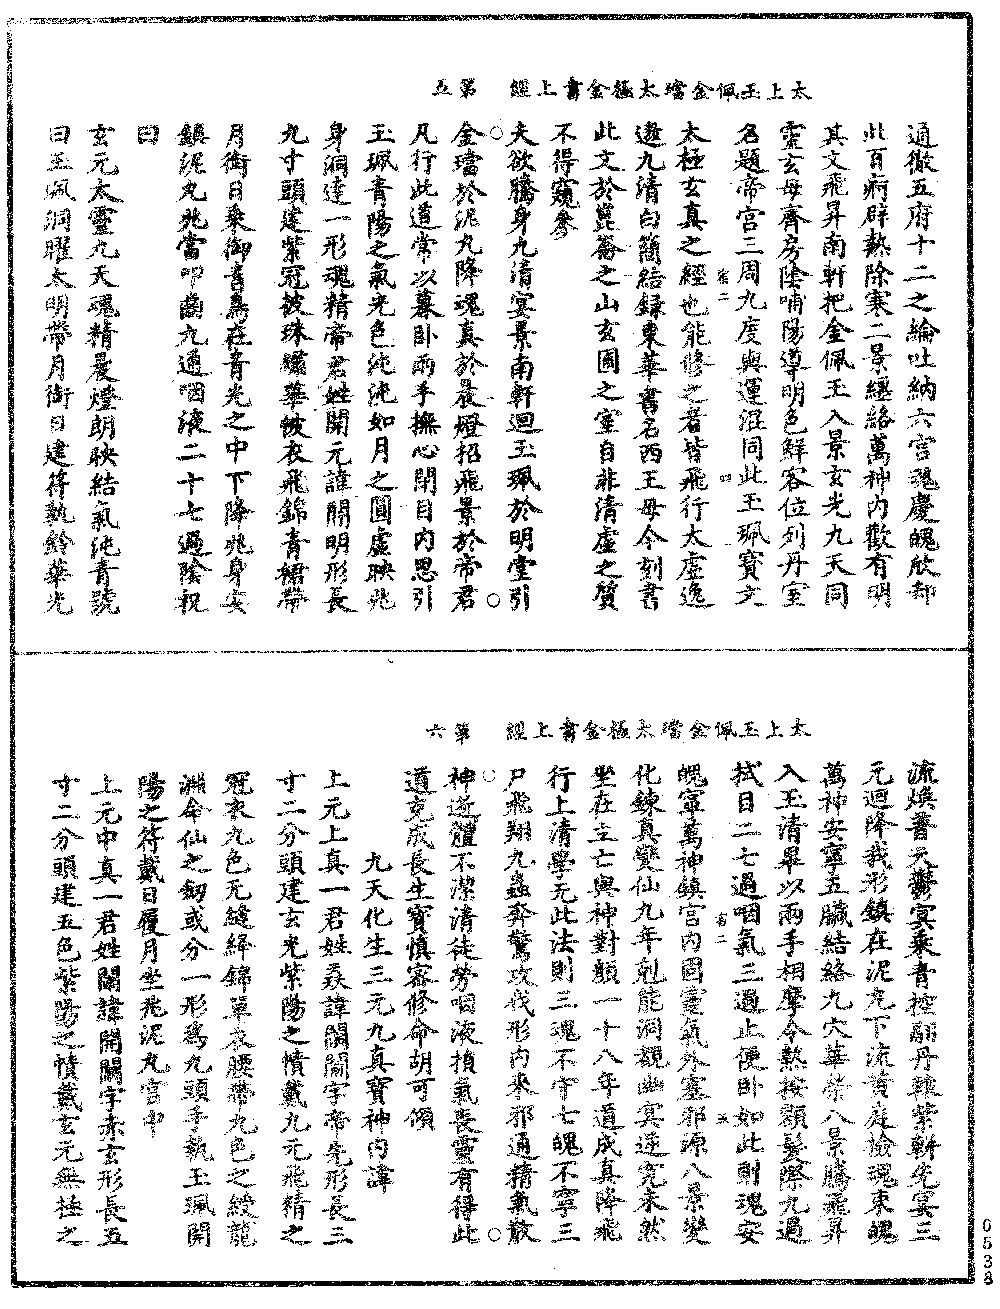 太上玉佩金璫太極金書上經　第五
通徹五府十二之綸吐納六宮魂慶魄欣却
此百痾辟熱除寒二景纏絡萬神內歡有明
其文飛昇南軒把金佩玉入景玄光九天同
靈玄母齊房陰哺陽導明色鮮容位列丹室
名題帝宮三周九度與運混同此玉珮寶文
太極玄真之經也能修之者皆飛行太虛逸
遨九清白簡結錄東華書名西王母今刻書
此文於崑崙之山玄圃之室自非清虛之質
不得窺參
夫欲騰身九清宴景南軒迴玉珮於明堂引
金璫於泥丸降魂真於晨燈招飛景於帝君
凡行此道常以暮卧兩手撫心閉目內思引
玉珮青陽之氣光色沌沌如月之圓虛映兆
身洞達一形魂精帝君姓開元諱開明形長
九寸頭建紫冠披珠繡華帔衣飛錦青裙帶
月銜日乘御青鳥在青光之中下降兆身安
鎮泥丸兆當叩齒九通咽液二十七過陰祝
曰
玄元太靈九天魂精晨燈朗映結氣沌青號
曰玉珮洞曜太明帶月銜日建符執鈴華光
太上玉佩金璫太極金書上經　第六
流煥普天鬱冥乘青控翮丹轅紫軿先宴三
元迴降我形鎮在泥丸下流黃庭檢魂束魄
萬神安寧五臟結絡九穴華榮八景騰飛昇
入玉清畢以兩手相摩令熱按額髮際九過
拭目二七過咽氣三過止便卧如此則魂安
魄寧萬神鎮宮內固靈氣外塞邪源八景變
化鍊真變仙九年剋能洞觀幽冥逆究未然
坐在立亡與神對顏一十八年道成真降飛
行上清學无此法則三魂不守七魄不寧三
尸飛翔九蟲奔驚攻伐形內來邪通精氣散
神逝體不潔清徒勞咽液損氣喪靈有得此
道克成長生寶慎審修命胡可傾
九天化生三元九真寶神內諱
上元上真一君姓諱字帝先形長三
寸二分頭建玄光紫陽之幘戴九元飛精之
冠衣九色无縫絳錦單衣腰帶九色之綬龍
淵命仙之劒或分一形為九頭手執玉珮開
陽之符戴日履月坐兆泥丸宮中
上元中真一君姓諱字赤玄形長五
寸二分頭建五色紫陽之幘戴玄元無極之
卷二　四
卷二　五
0538